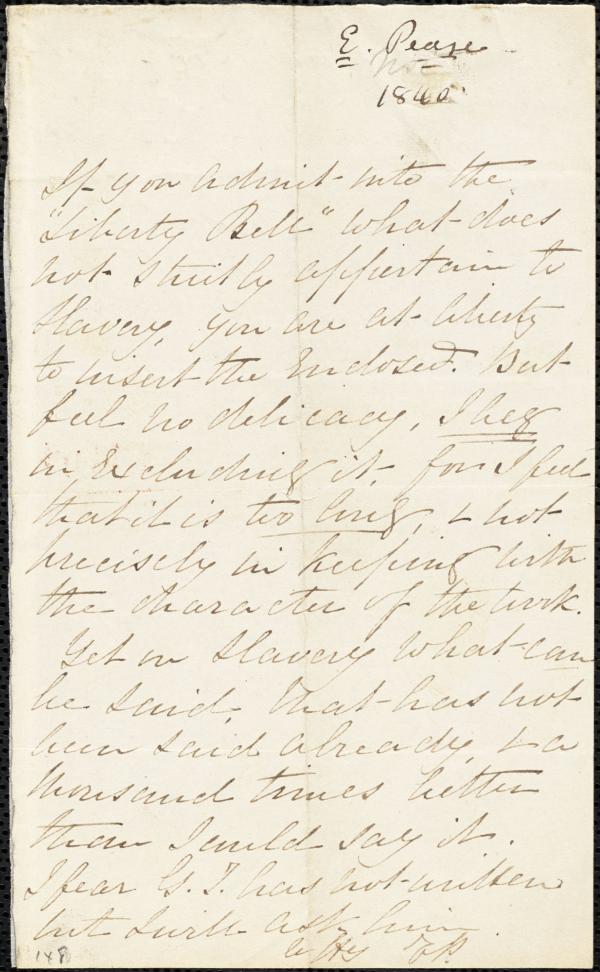 E. Pease
1840
If you admit into the
"Liberty Bell" what does
not strictly appertain to
Slavery, you are at liberty
to insert the Enclosed. But
feel no delicacy, I beg
in Excluding it, for I feel
that it is too long, & not
precisely in keeping with
the character of the work.
Yet on Slavery what can
be said, that has not
been said already, & a
thousand times better
than I could say it.
I fear G. T. has not written
but I will ask him.
EP
148